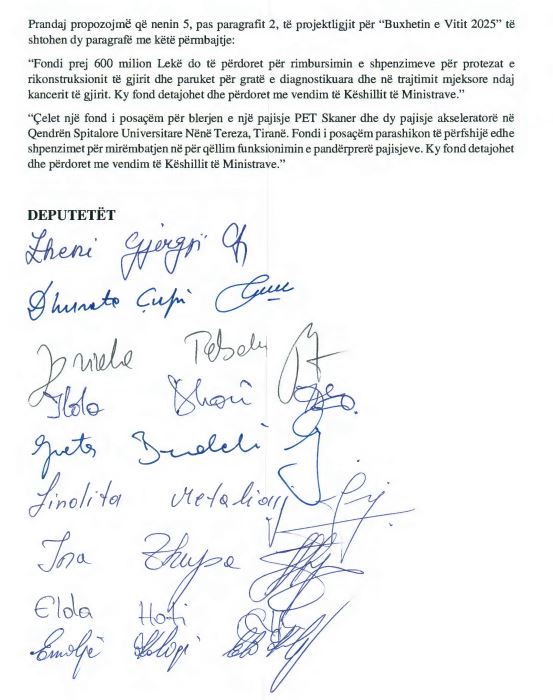 Prandaj propozojmë që nenin 5, pas paragrafit 2, të projektligjit për “Buxhetin e Vitit 2025” të
shtohen dy paragrafë me këtë përmbajtje:
“Fondi prej 600 milion Lekë do të përdoret për rimbursimin e shpenzimeve për protezat e
rikonstruksionit të gjirit dhe paruket për gratë e diagnostikuara dhe në trajtimit mjeksore ndaj
kancerit të gjirit. Ky fond detajohet dhe përdoret me vendim të Këshillit të Ministrave.”
“Çelet një fond i posaçëm për blerjen e një pajisje PET Skaner dhe dy pajisje akseleratorë në
Qendrën Spitalore Universitare Nënë Tereza, Tiranë. Fondi i posaçëm parashikon të përfshijë edhe
shpenzimet për mirëmbatjen në për qëllim funksionimin e pandërprerë pajisjeve. Ky fond detajohet
dhe përdoret me vendim të Këshillit të Ministrave.”
DEPUTETËT
Zheni Gjergji
Dhurata Çupi
Ilda Dhori
Greta
Jinolita Metaliaj
Ina Zhupa
Elda Hoti